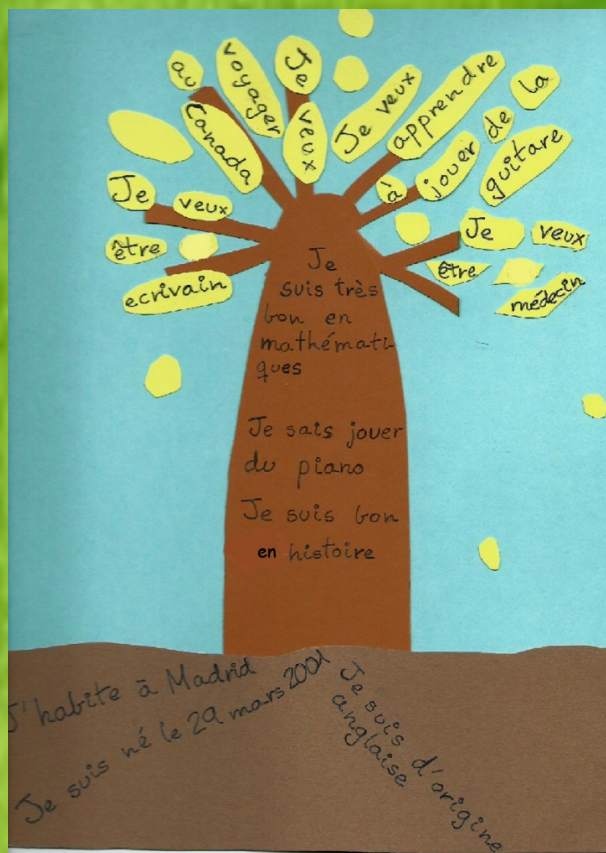 Je
veux
voyager
au
Canada
Je veux
apprendre
à
jouer
de
la
guitare
Je
veux
être
ecrivain
Je
veux
être
médecin
Je
suis très
bon en
mathémati-
ques
Je sais jouer
du piano
Je suis bon
en histoire
J'habite à Madrid
Je suis né le 29 mars 2001
Je suis d'origine
anglaise